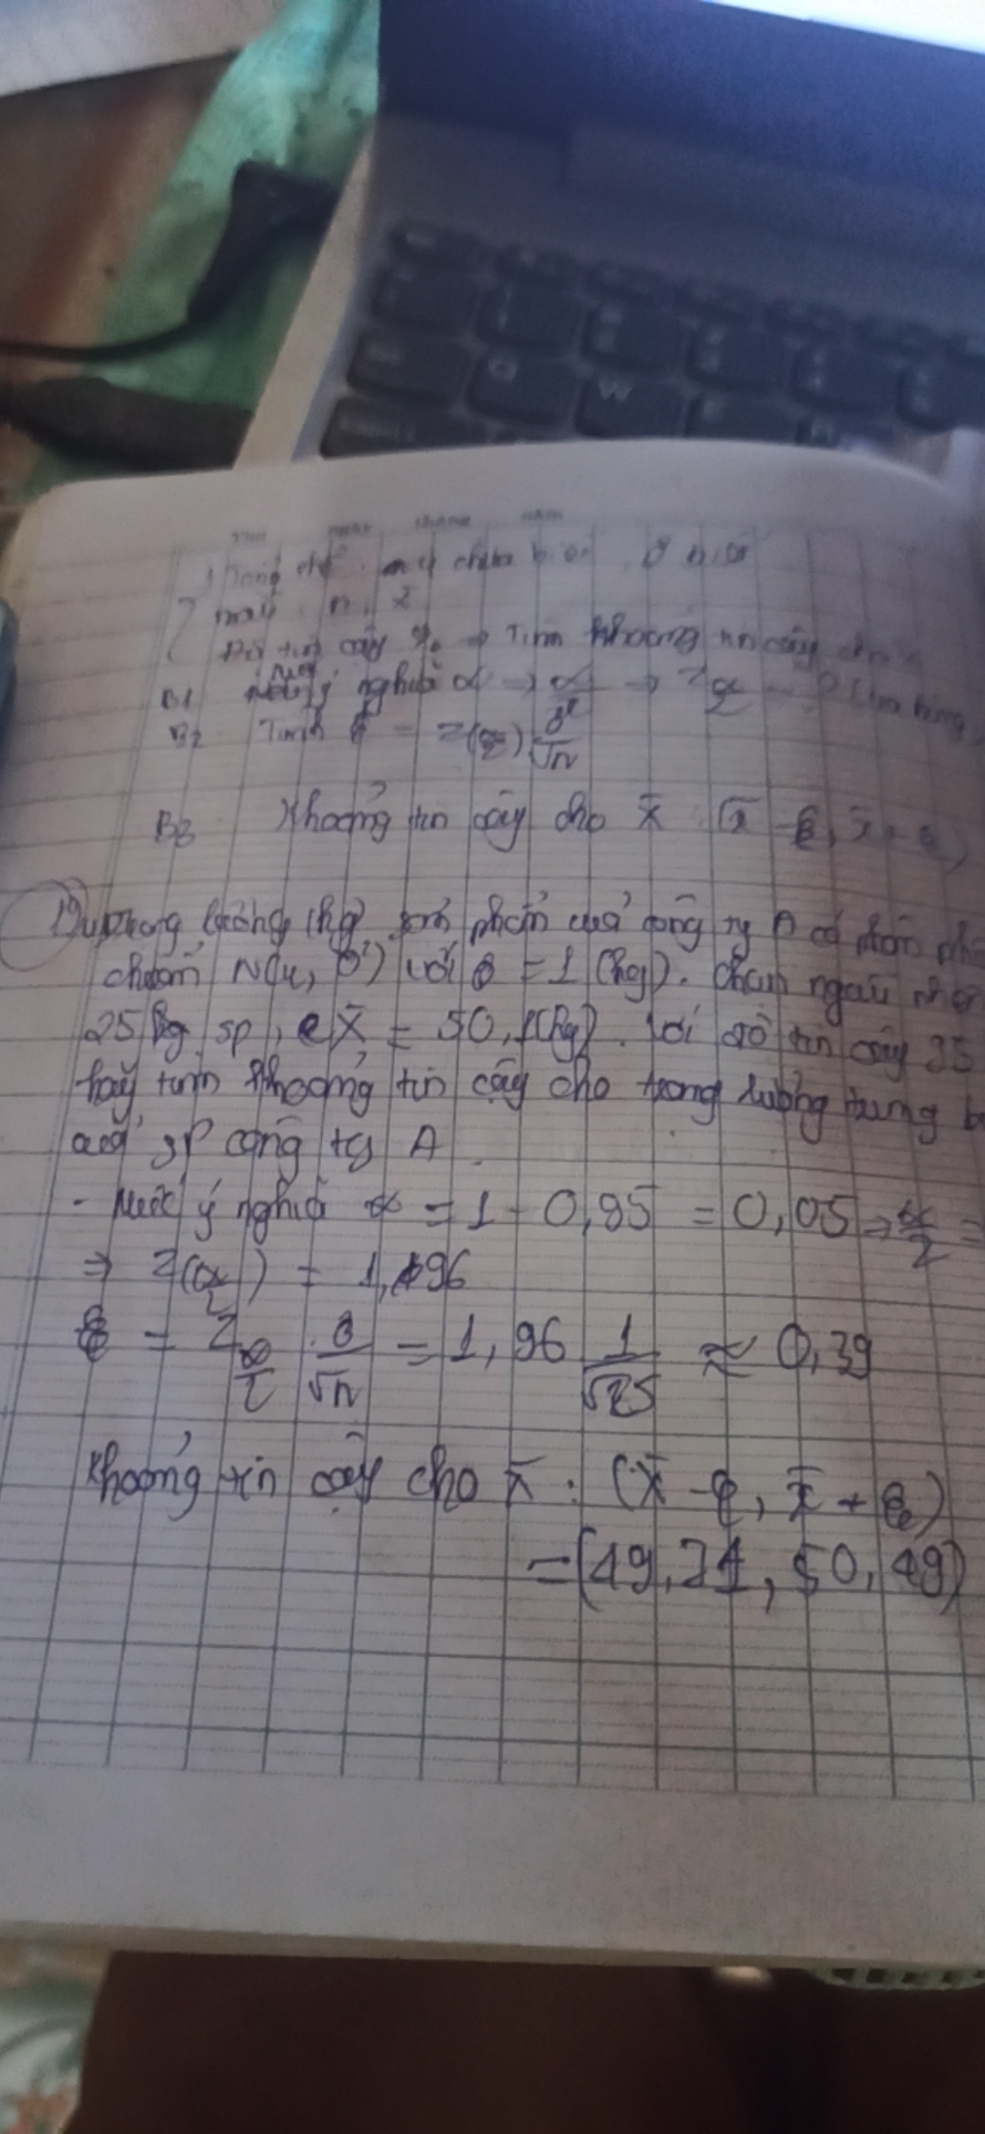 chưa
mẫu n, x̄
tin cậy % ⇒ Tìm khoảng tin cậy
B1 Mức ý nghĩa α → α/2 → Z α/2
B2 Tính ε = Z(α/2) σ/√n
B3 Khoảng tin cậy cho x̄ (x̄ - ε, x̄ + ε)
Trọng lượng (kg) sản phẩm của công ty A có phân
chuẩn N(μ, σ²) với σ = 1 (kg). Chọn ngẫu
25 sp, x̄ = 50,1(kg). Với độ tin cậy 95
hãy tính khoảng tin cậy cho trọng lượng trung b
của sp công ty A
- Mức ý nghĩa α = 1 - 0,95 = 0,05 → α/2 =
⇒ Z(α/2) = 1,96
ε = Z α/2 . σ/√n = 1,96 1/√25 ≈ 0,39
Khoảng tin cậy cho x̄ : (x̄ - ε, x̄ + ε)
= (49,71, 50,49)